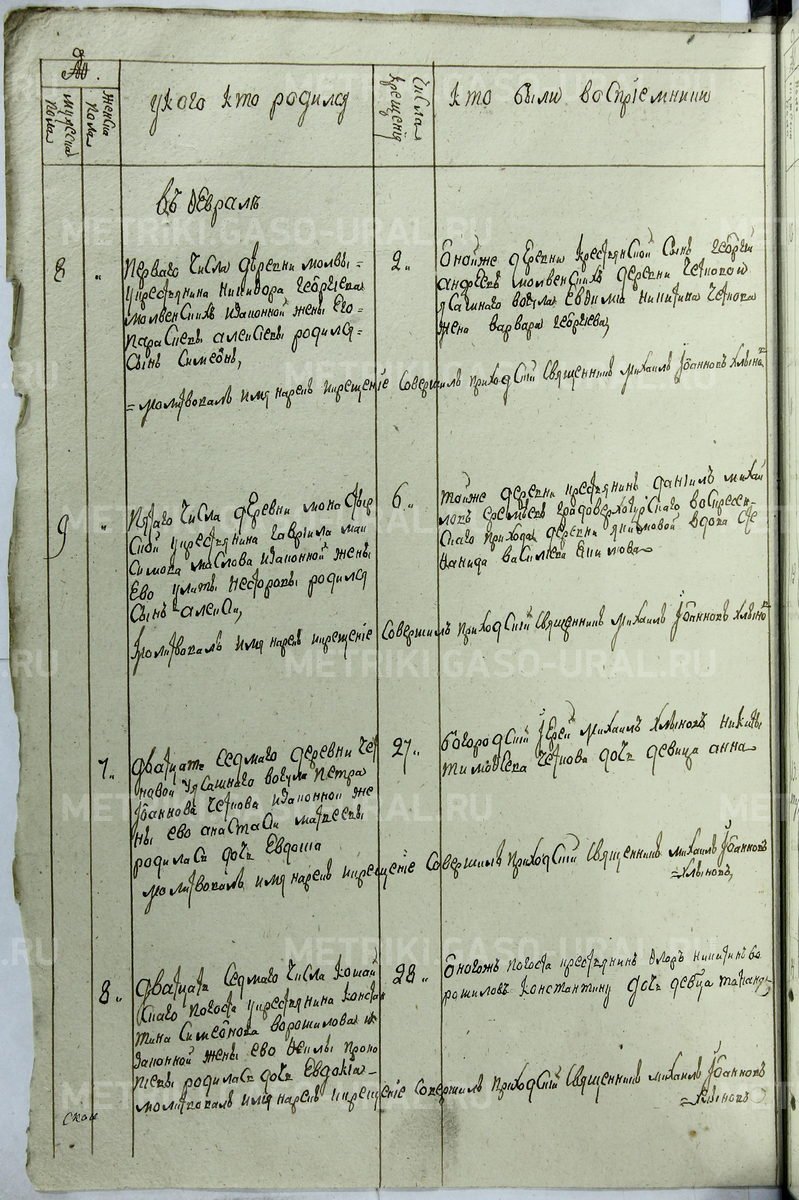 мужеска пола
женска пола
у кого кто родился
числа крещенія
кто были воспріемники
въ Ѳевралѣ
8 „
перваго числа деревни молвы=
у крестьянина никифора георгіева
молвенскихъ и законной жены его
парасковьи алексѣевы родился
сынъ Симеонъ,
2 „
оной же деревни крестьянской сынъ георгій
андреевъ молвенскихъ деревни черновой
ясашнаго вогула евдокима никитина чернова
жена варвара георгіева,
= молитвовалъ имя нарекъ и крещеніе совершилъ приходскій священникъ михаилъ Іоанновъ хлыновъ
9 „
пятаго числа деревни монастыр
ской у крестьянина гавріила мак
симова маслова и законной жены
его улиты несторовы родился
сынъ алексій,
6 „
той же деревни крестьянинъ даніилъ михай
ловъ градоверхотурскаго воскресен=
скаго прихода деревни вдова сте
фанида василіева
молитвовалъ имя нарекъ и крещеніе совершилъ приходскій священникъ михаилъ Іоанновъ хлыновъ
7 „
дватцать седмаго деревни чер
новой у ясашнаго вогула петра
Іоаннова чернова и законной же
ны ево анастасіи матвеевы
родилась дочь Евдокіа
27 „
богородскій Іерей михаилъ хлыновъ никиты
тимоѳеева чернова дочь девица анна
молитвовалъ имя нарекъ и крещеніе совершилъ приходскій священникъ михаилъ Іоанновъ
=хлыновъ,
8 „
дватцать седмаго числа кошай
скаго погоста у крестьянина констан
тина симеонова ворошилова и
законной жены ево ѳеклы проко
пьевы родилась дочь Евдокіа=
28 „
оногожъ погоста крестьянинъ Ѳлоръ никитинъ во
рошиловъ константину дочь девица татіана,
молитвовалъ имя нарекъ и крещеніе совершилъ приходскій священникъ михаилъ Іоанновъ
=хлыновъ
METRIKI.GASO-URAL.RU